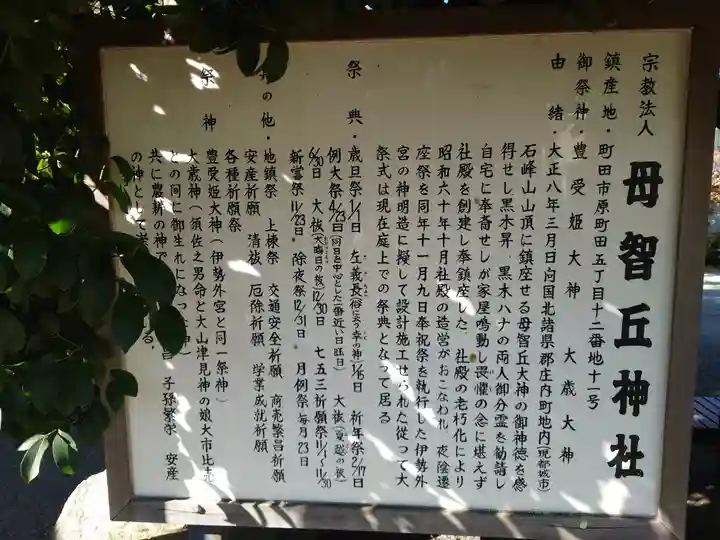 宗教法人 母智丘神社
鎮産地・町田市原町田五丁目十二番地十一号
御祭神・豊受姫大神 大歳大神
由緒・大正八年三月日向国北諸県郡庄内町地内(現都城市)
石峰山山頂に鎮座せる母智丘大神の御神徳を感
得せし黒木昇、黒木ハナの両人御分霊を勧請し
自宅に奉斎せしが家屋鳴動し畏懼の念に堪えず
社殿を創建し奉鎮座した、社殿の老朽化により
昭和六十年十月社殿の造営がおこなわれ 夜陰遷
座祭を同年十一月九日奉祝祭を執行した伊勢外
宮の神明造に擬して設計施工せられた従って大
祭式は現在庭上での祭典となって居る
祭典・歳旦祭1/1日 左義長(俗に云う幸の神)1/16日 祈年祭2/17日
例大祭4/23日(同日を中心とした一番近い日曜日) 大祓(夏越の祓)
6/30日 大祓(大晦日の祓)12/30日 七五三祈願祭11/1~11/30
新嘗祭11/23日・除夜祭12/31日 月例祭毎月23日
の他・地鎮祭 上棟祭 交通安全祈願 商売繁昌祈願
安産祈願 清祓 厄除祈願 学業成就祈願
各種祈願祭
祭神 豊受姫大神(伊勢外宮と同一祭神)
大歳神(須佐之男命と大山津見神の娘大市比売
との間に御生れになった神)
共に農耕の神で 昌 子孫繁栄 安産
の神として る,